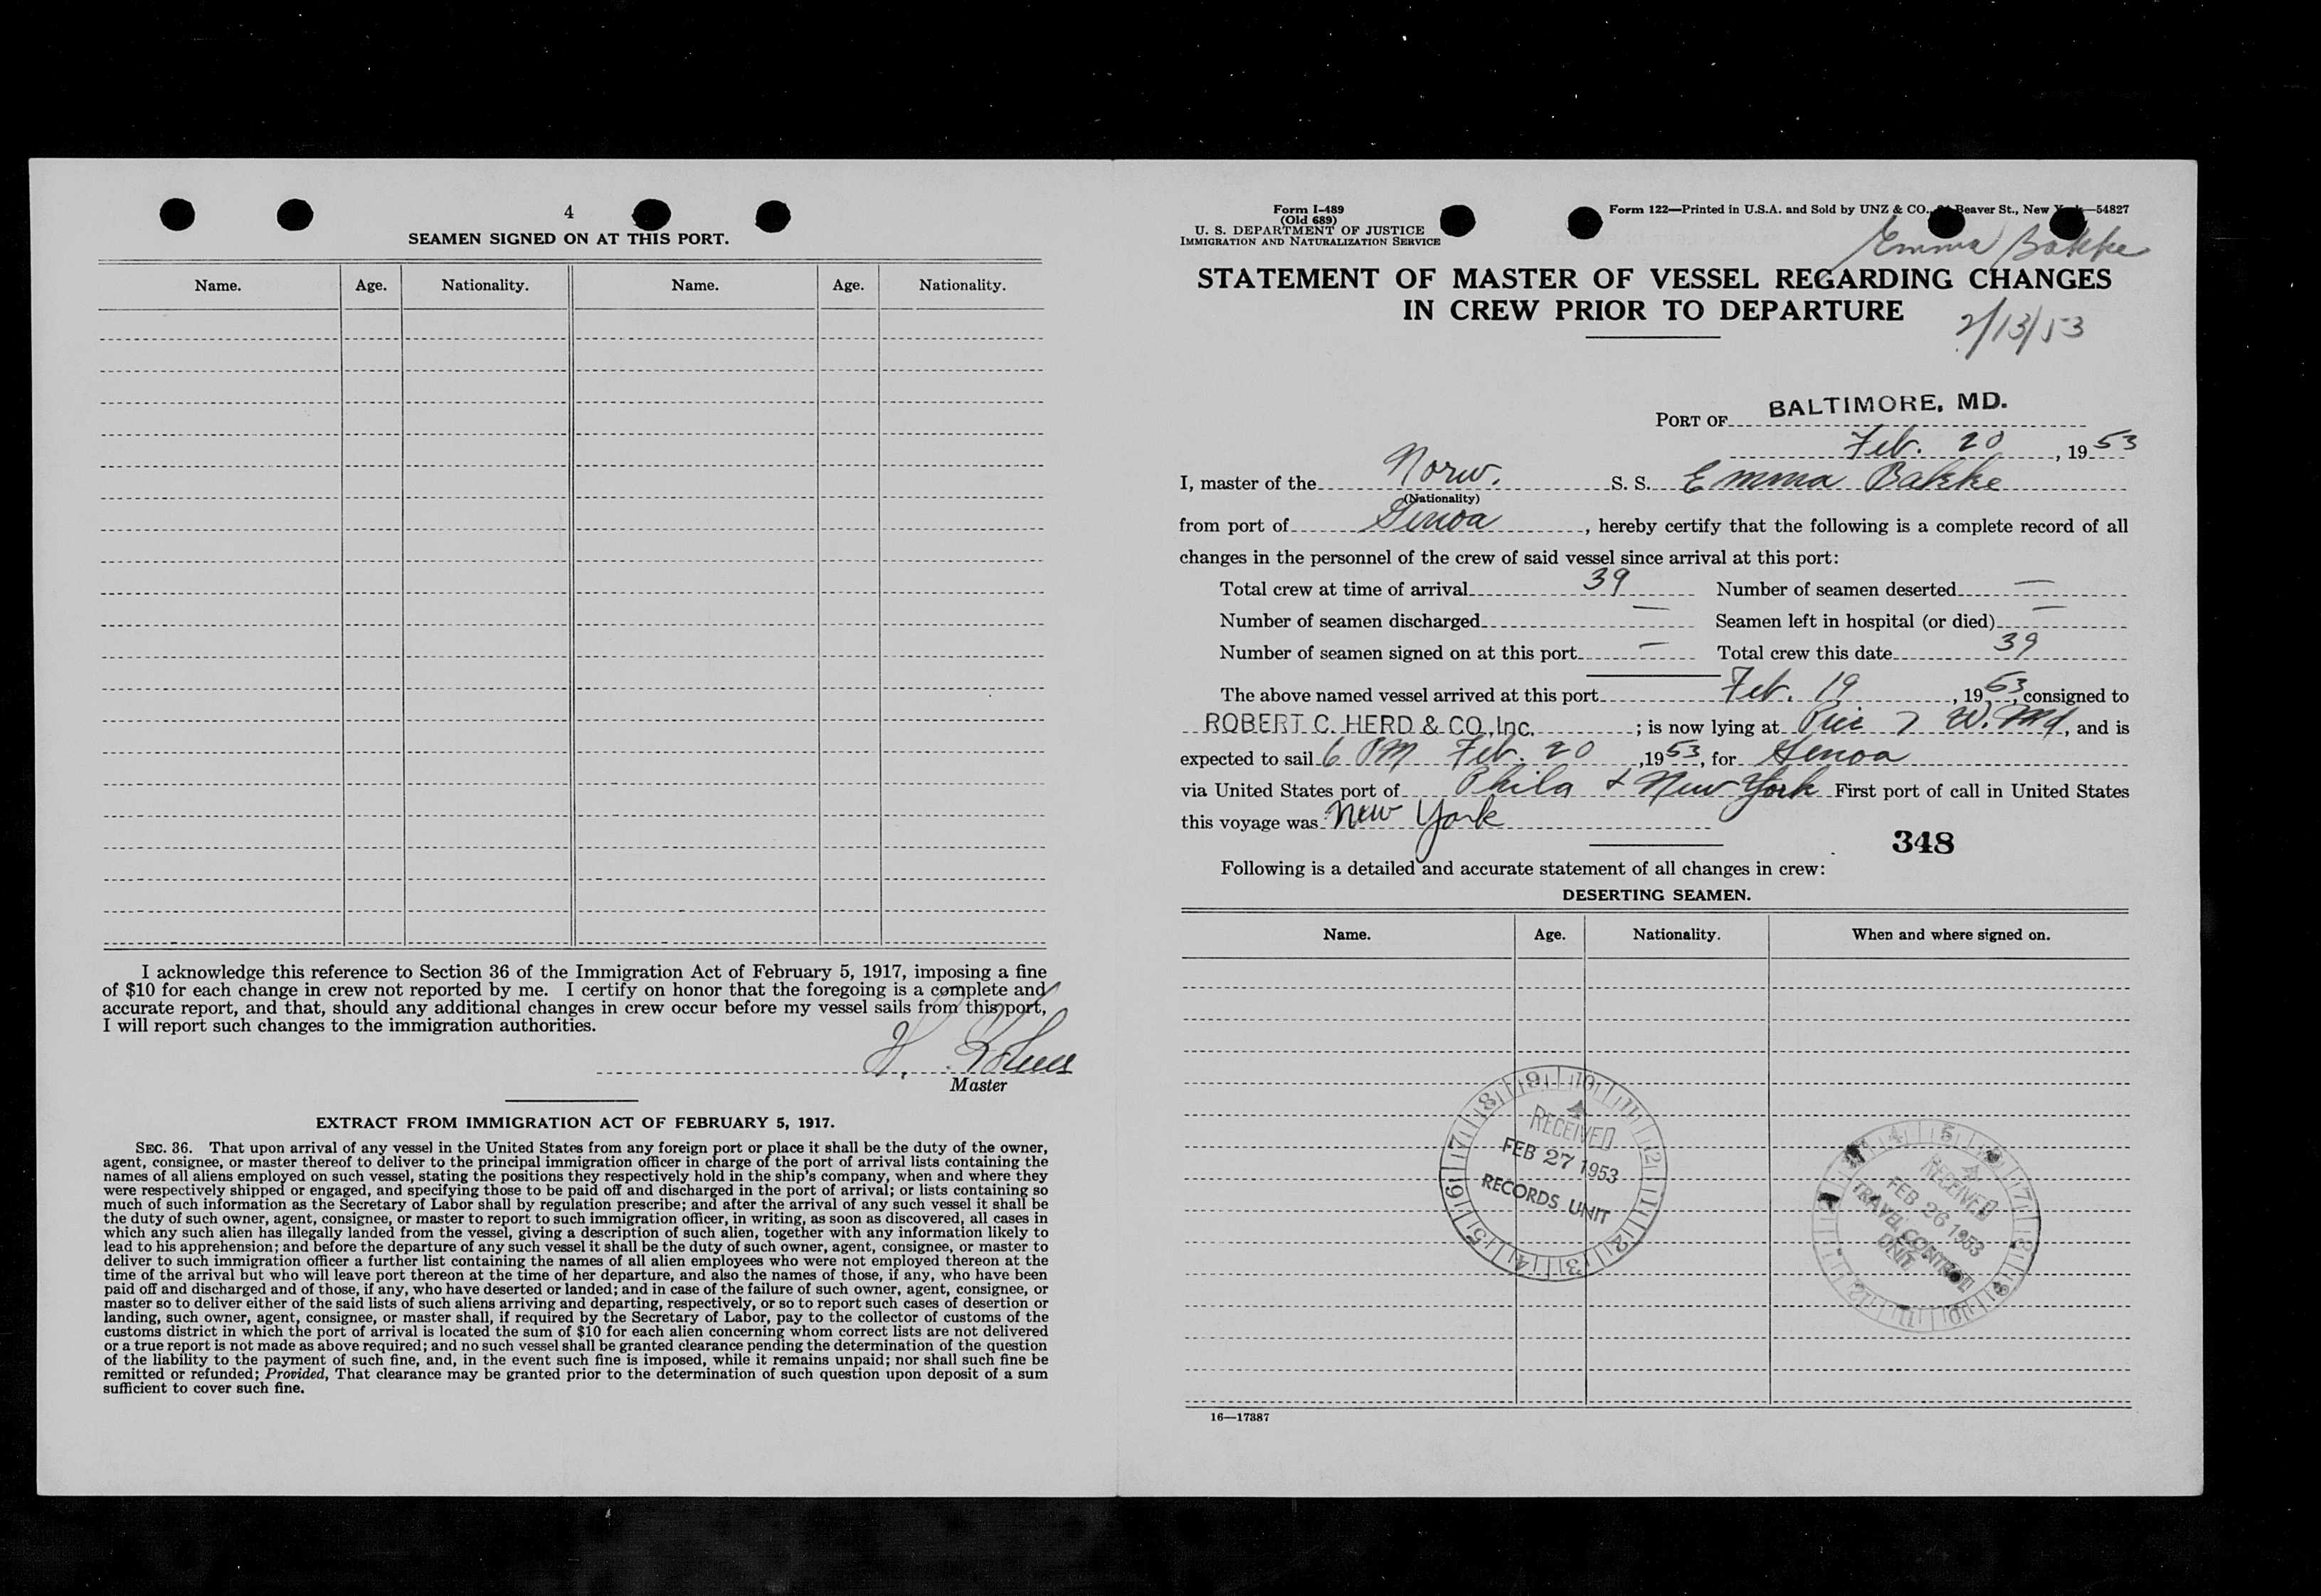 4
SEAMEN SIGNED ON AT THIS PORT.
Name. Age. Nationality. Name. Age. Nationality.
I acknowledge this reference to Section 36 of the Immigration Act of February 5, 1917, imposing a fine
of $10 for each change in crew not reported by me. I certify on honor that the foregoing is a complete and
accurate report, and that, should any additional changes in crew occur before my vessel sails from this port,
I will report such changes to the immigration authorities.
Master
EXTRACT FROM IMMIGRATION ACT OF FEBRUARY 5, 1917.
SEC. 36. That upon arrival of any vessel in the United States from any foreign port or place it shall be the duty of the owner,
agent, consignee, or master thereof to deliver to the principal immigration officer in charge of the port of arrival lists containing the
names of all aliens employed on such vessel, stating the positions they respectively hold in the ship's company, when and where they
were respectively shipped or engaged, and specifying those to be paid off and discharged in the port of arrival; or lists containing so
much of such information as the Secretary of Labor shall by regulation prescribe; and after the arrival of any such vessel it shall be
the duty of such owner, agent, consignee, or master to report to such immigration officer, in writing, as soon as discovered, all cases in
which any such alien has illegally landed from the vessel, giving a description of such alien, together with any information likely to
lead to his apprehension; and before the departure of any such vessel it shall be the duty of such owner, agent, consignee, or master to
deliver to such immigration officer a further list containing the names of all alien employees who were not employed thereon at the
time of the arrival but who will leave port thereon at the time of her departure, and also the names of those, if any, who have been
paid off and discharged and of those, if any, who have deserted or landed; and in case of the failure of such owner, agent, consignee, or
master so to deliver either of the said lists of such aliens arriving and departing, respectively, or so to report such cases of desertion or
landing, such owner, agent, consignee, or master shall, if required by the Secretary of Labor, pay to the collector of customs of the
customs district in which the port of arrival is located the sum of $10 for each alien concerning whom correct lists are not delivered
or a true report is not made as above required; and no such vessel shall be granted clearance pending the determination of the question
of the liability to the payment of such fine, and, in the event such fine is imposed, while it remains unpaid; nor shall such fine be
remitted or refunded; Provided, That clearance may be granted prior to the determination of such question upon deposit of a sum
sufficient to cover such fine.
Form I-489
(Old 689)
U. S. DEPARTMENT OF JUSTICE
IMMIGRATION AND NATURALIZATION SERVICE
Form 122—Printed in U.S.A. and Sold by UNZ & CO., Beaver St., New —54827
Emma Bakke
STATEMENT OF MASTER OF VESSEL REGARDING CHANGES
IN CREW PRIOR TO DEPARTURE
2/13/53
PORT OF BALTIMORE, MD.
Feb. 20, 1953
I, master of the Norw. S. S. Emma Bakke
(Nationality)
from port of Genoa, hereby certify that the following is a complete record of all
changes in the personnel of the crew of said vessel since arrival at this port:
Total crew at time of arrival 39 Number of seamen deserted —
Number of seamen discharged — Seamen left in hospital (or died) —
Number of seamen signed on at this port — Total crew this date 39
The above named vessel arrived at this port Feb. 19, 1953, consigned to
ROBERT C. HERD & CO., Inc. ; is now lying at Pier 7 W. Md, and is
expected to sail 6 PM Feb. 20, 1953, for Genoa
via United States port of Phila & New York First port of call in United States
this voyage was New York
348
Following is a detailed and accurate statement of all changes in crew:
DESERTING SEAMEN.
Name. Age. Nationality. When and where signed on.
RECEIVED
FEB 27 1953
RECORDS UNIT
RECEIVED
FEB 26 1953
TRAVEL CONTROL
UNIT
16—17387